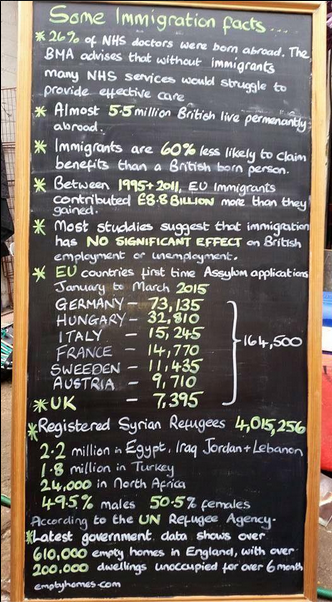 Some Immigration facts ...
* 26% of NHS doctors were born abroad. The
BMA advises that without immigrants
many NHS services would struggle to
provide effective care
* Almost 5.5 million British live permenantly
abroad.
* Immigrants are 60% less likely to claim
benefits than a British born person.
* Between 1995+2011, EU Immigrants
contributed £8.8 BILLION more than they
gained.
* Most studdies suggest that immigration
has NO SIGNIFICANT EFFECT on British
employment or unemployment.
* EU countries first time Assylom applications
January to March 2015
GERMANY - 73,135
HUNGARY - 32,810
ITALY - 15,245
FRANCE - 14,770
SWEEDEN - 11,435
AUSTRIA - 9,710
164,500
* UK - 7,395
* Registered Syrian Refugees 4,015,256
2.2 million in Egypt, Iraq Jordan + Lebanon
1.8 million in Turkey
24,000 in North Africa
49.5% males 50.5% females
According to the UN Refugee Agency.
* Latest government data shows over
610,000 empty homes in England, with over
200,000 dwellings unoccupied for over 6 month
emptyhomes.com